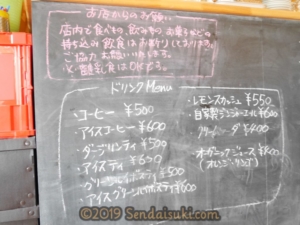 お店からのお願い
店内で食べもの、飲みもの、お菓子などの
持ち込み飲食はお断りしております。
ご協力お願いいたします。
※離乳食はOKです。
ドリンクMenu
・コーヒー ¥500
・アイスコーヒー ¥600
・ダージリンティ ¥500
・アイスティ ¥600
・グリーンルイボスティ ¥500
・アイスグリーンルイボスティ ¥600
・レモンスカッシュ ¥550
・自家製ジンジャーエール ¥600
・オーガニックジュース ¥400
(オレンジ・リンゴ)
©2019 Sendaisuki.com